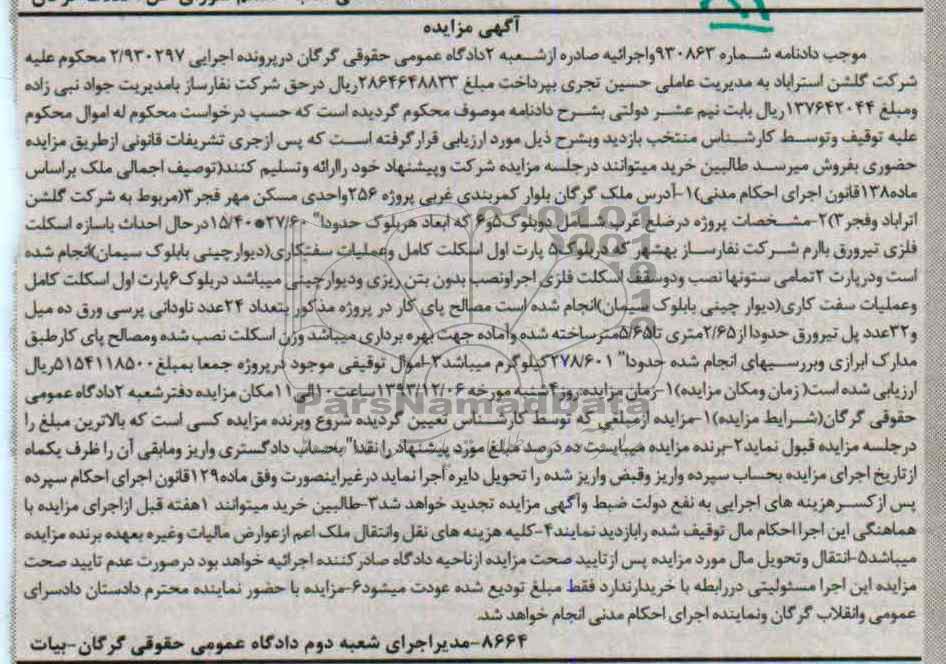 آگهی مزایده
موجب دادنامه شماره ۹۳۰۸۶۳واجرائیه صادره ازشعبه ۲دادگاه عمومی حقوقی گرگان درپرونده اجرایی ۲/۹۳۰۲۹۷ محکوم علیه
شرکت گلشن استراباد به مدیریت عاملی حسین تجری بپرداخت مبلغ ۲۸۶۴۶۴۸۸۳۳ریال درحق شرکت نفارساز بامدیریت جواد نبی زاده
ومبلغ ۱۳۷۶۴۲۰۴۴ریال بابت نیم عشر دولتی بشرح دادنامه موصوف محکوم گردیده است که حسب درخواست محکوم له اموال محکوم
علیه توقیف وتوسط کارشناس منتخب بازدید وبشرح ذیل مورد ارزیابی قرارگرفته است که پس ازجری تشریفات قانونی ازطریق مزایده
حضوری بفروش میرسد طالبین خرید میتوانند درجلسه مزایده شرکت وپیشنهاد خود راارائه وتسلیم کنند(توصیف اجمالی ملک براساس
ماده۱۳۸قانون اجرای احکام مدنی)۱-آدرس ملک گرگان بلوار کمربندی غربی پروژه ۲۵۶واحدی مسکن مهر فجر۳(مربوط به شرکت گلشن
اتراباد وفجر۳)۲-مشخصات پروژه درضلع غرب مشتمل دوبلوک۵و۶ که ابعاد هربلوک حدودا" ۲۷/۶۰*۱۵/۴۰درحال احداث باسازه اسکلت
فلزی تیرورق باارم شرکت نفارساز بهشهر که دربلوک۵ پارت اول اسکلت کامل وعملیات سفتکاری(دیوارچینی بابلوک سیمان)انجام شده
است ودرپارت ۲تمامی ستونها نصب ودوسقف اسکلت فلزی اجراونصب بدون بتن ریزی ودیوارچینی میباشد دربلوک۶پارت اول اسکلت کامل
وعملیات سفت کاری(دیوار چینی بابلوک سیمان)انجام شده است مصالح پای کار در پروژه مذکور بتعداد ۲۴عدد ناودانی پرسی ورق ده میل
و۳۲عدد پل تیرورق حدودا از۲/۶۵متری تا۵/۶۵متر ساخته شده وآماده جهت بهره برداری میباشد وزن اسکلت نصب شده ومصالح پای کارطبق
مدارک ابرازی وبررسیهای انجام شده حدودا" ۲۷۸/۶۰۱کیلوگرم میباشد۳-اموال توقیفی موجود درپروژه جمعا بمبلغ۵۱۵۴۱۱۸۵۰۰ریال
ارزیابی شده است( زمان ومکان مزایده)۱-زمان مزایده روز۴شنبه مورخه ۱۳۹۳/۱۲/۰۶ساعت ۱۰الی۱۱مکان مزایده دفترشعبه ۲دادگاه عمومی
حقوقی گرگان(شرایط مزایده)۱-مزایده ازمبلغی که توسط کارشناس تعیین گردیده شروع وبرنده مزایده کسی است که بالاترین مبلغ را
درجلسه مزایده قبول نماید۲-برنده مزایده میبایست ده درصد مبلغ مورد پیشنهاد را نقدا"بحساب دادگستری واریز ومابقی آن را ظرف یکماه
ازتاریخ اجرای مزایده بحساب سپرده واریز وقبض واریز شده را تحویل دایره اجرا نماید درغیراینصورت وفق ماده۱۲۹قانون اجرای احکام سپرده
پس ازکسرهزینه های اجرایی به نفع دولت ضبط وآگهی مزایده تجدید خواهد شد۳-طالبین خرید میتوانند ۱هفته قبل ازاجرای مزایده با
هماهنگی این اجرا احکام مال توقیف شده رابازدید نمایند۴-کلیه هزینه های نقل وانتقال ملک اعم ازعوارض مالیات وغیره بعهده برنده مزایده
میباشد۵-انتقال وتحویل مال مورد مزایده پس ازتایید صحت مزایده ازناحیه دادگاه صادرکننده اجرائیه خواهد بود درصورت عدم تایید صحت
مزایده این اجرا مسئولیتی دررابطه با خریدارندارد فقط مبلغ تودیع شده عودت میشود۶-مزایده با حضور نماینده محترم دادستان دادسرای
عمومی وانقلاب گرگان ونماینده اجرای احکام مدنی انجام خواهد شد.
۸۶۶۴-مدیراجرای شعبه دوم دادگاه عمومی حقوقی گرگان-بیات
ParsNamadData